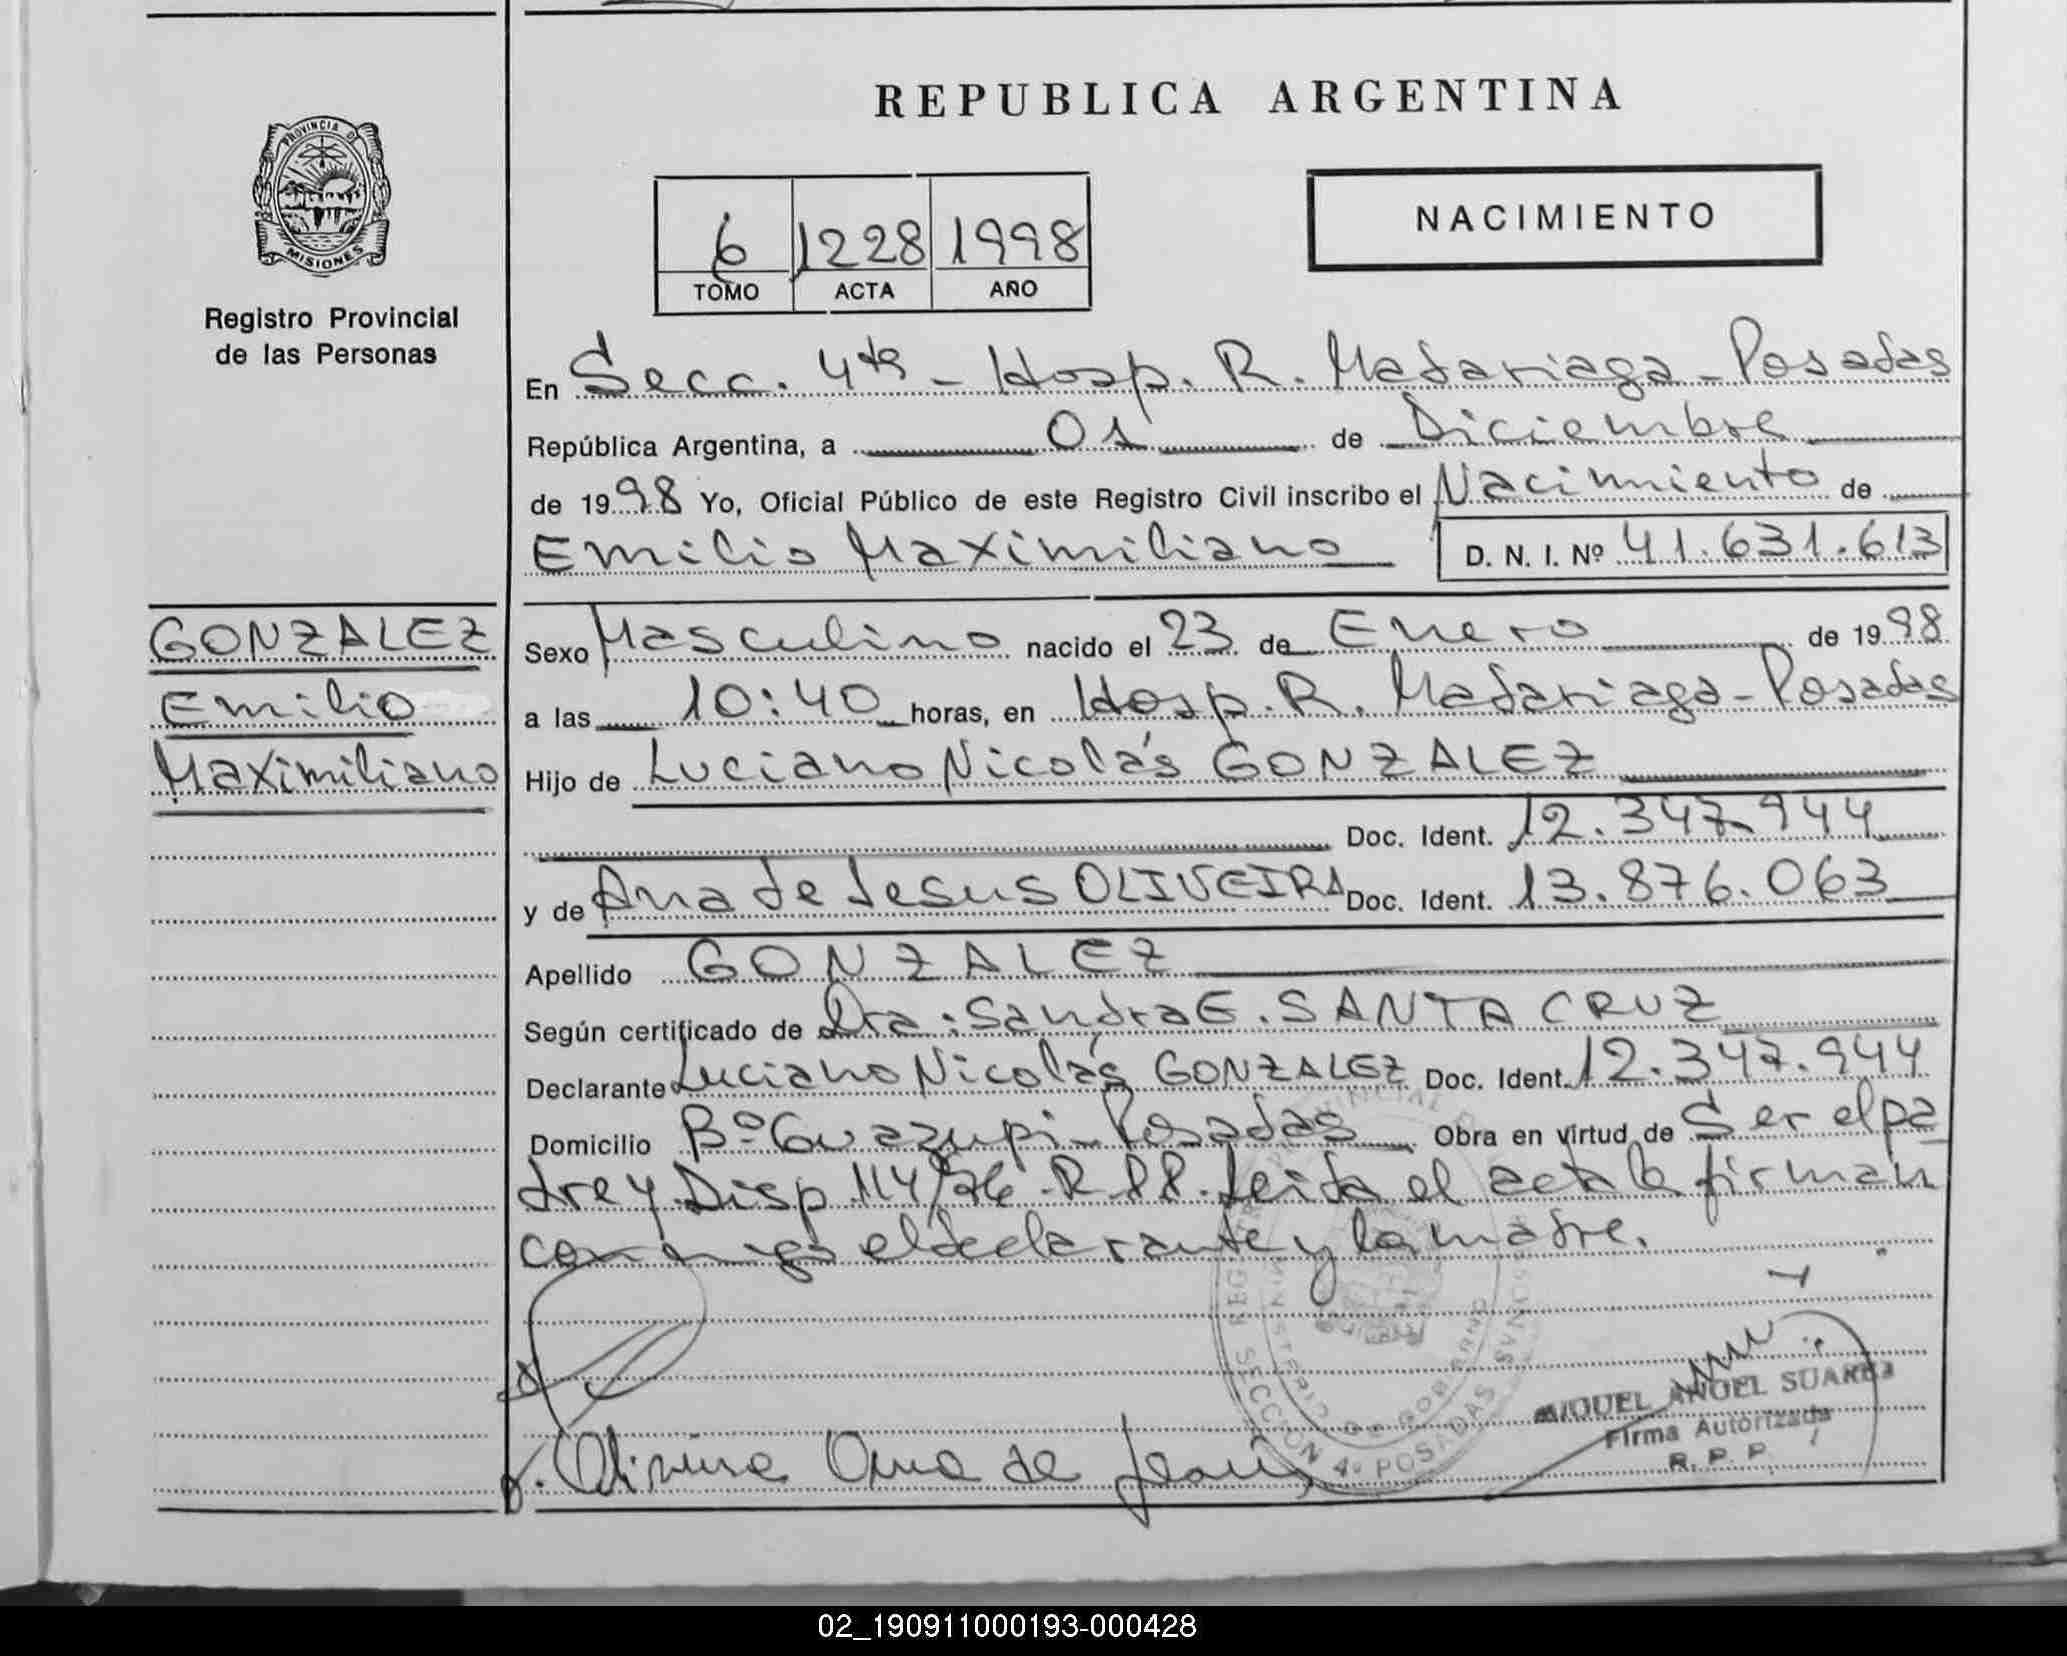 REPUBLICA ARGENTINA
PROVINCIA DE
MISIONES
Registro Provincial
de las Personas
6 1228 1998
TOMO ACTA AÑO
NACIMIENTO
En Secc. 4ta - Hosp. R. Madariaga - Posadas
República Argentina, a 01 de Diciembre
de 1998 Yo, Oficial Público de este Registro Civil inscribo el Nacimiento de
Emilio Maximiliano D. N. I. Nº 41.631.613
GONZALEZ
Emilio
Maximiliano
Sexo Masculino nacido el 23 de Enero de 1998
a las 10:40 horas, en Hosp. R. Madariaga - Posadas
Hijo de Luciano Nicolás GONZALEZ
Doc. Ident. 12.347.944
y de Ana de Jesus OLIVEIRA Doc. Ident. 13.876.063
Apellido GONZALEZ
Según certificado de Dra. Sandra E. SANTA CRUZ
Declarante Luciano Nicolás GONZALEZ Doc. Ident. 12.347.944
Domicilio Bº Guazupi - Posadas Obra en virtud de Ser el pa
dre y Disp 114/76 - R.P.P. Leida el acta la firman
conmigo el declarante y la madre.
MIGUEL ANGEL SUAREZ
Firma Autorizada
R. P. P.
SECCION 4º POSADAS
MINISTERIO DE GOBIERNO
Ana de Jesus
02_190911000193-000428